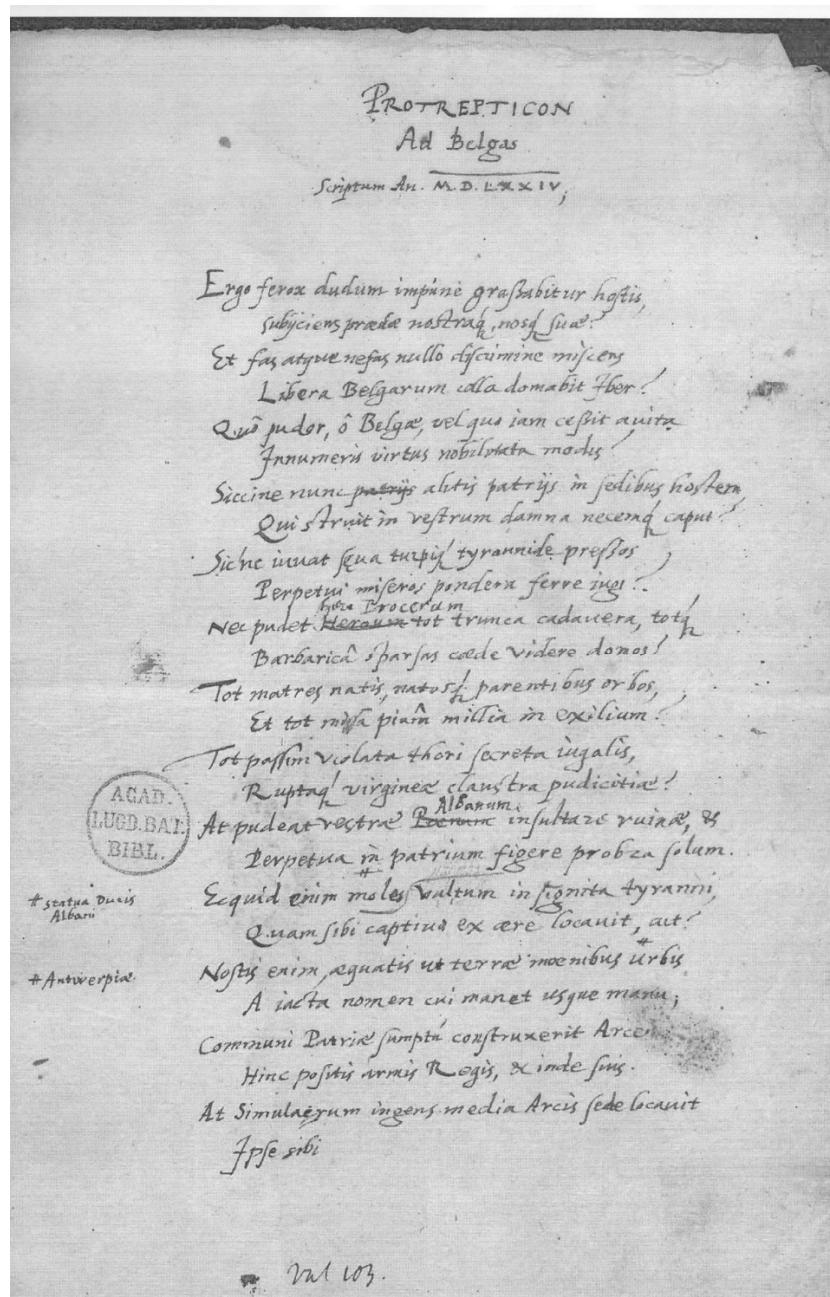 PROTREPTICON
Ad Belgas
Scriptum An. M.D.LXXIV;
Ergo ferox dudum impunè graßabitur hostis,
Subijciens prædæ nostraq, nosq suæ?
Et fas atque nefas nullo discrimine miscens
Libera Belgarum colla domabit Iber?
Quò pudor, ô Belgæ, vel quo iam ceßit auita
Innumeris virtus nobilitata modis?
Siccine nunc patrijs alitis patrijs in sedibus hostem,
Qui struit in vestrum damna necemq caput?
Sic'ne iuuat sæua turpiq tyrannide preßos
Perpetui miseros pondera ferre iugi?
Procerum
Nec pudet Heroum tot trunca cadauera, totq
Barbaricâ sparsas cæde videre domos?
Tot matres natis, natosq parentibus orbos,
Et tot missa piûm millia in exilium?
Tot passim violata thori secreta iugalis,
Ruptaq virgineæ claustra pudicitiæ?
Albanum
At pudeat vestræ Poenum insultare ruinæ, &
Perpetua in patrium figere probra solum.
Ecquid enim #moles vultum insignita tyranni,
Quam sibi captiuo ex ære locauit, ait?
# statua Ducis
Albani
Nostis enim, æquatis ut terræ moenibus #Urbis
# Antwerpiæ
A iacta nomen cui manet usque manu;
Communi Patriæ sumptu construxerit Arcem
Hinc positis armis Regis, & inde suis.
At Simulacrum ingens media Arcis sede locauit
Ipse sibi
ACAD.
LUGD.BAT.
BIBL.
Vul 103.